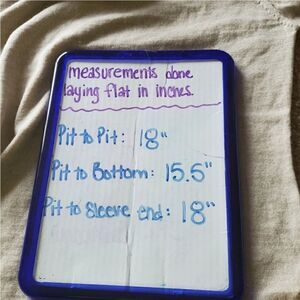 measurements done
laying flat in inches.
Pit to Pit: 18"
Pit to Bottom: 15.5"
Pit to Sleeve end: 18"